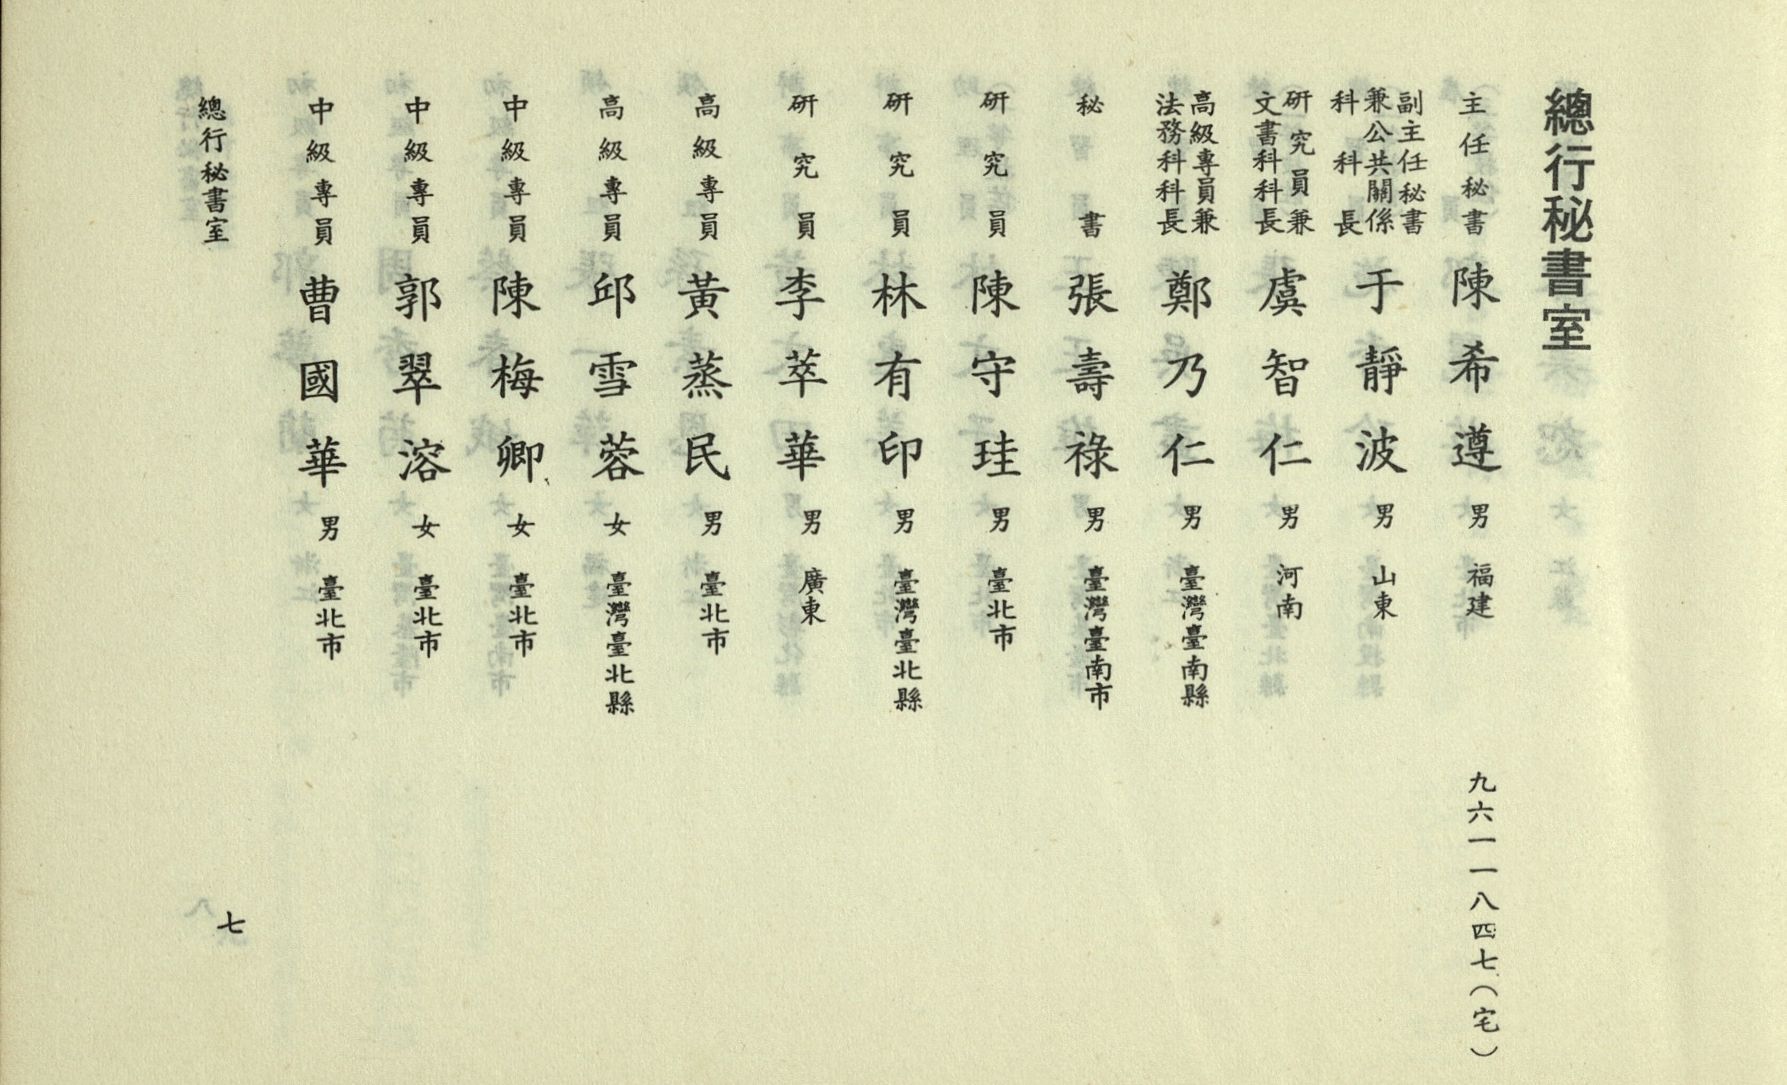 總行秘書室
主任秘書 陳希遵 男 福建 九六一一八四七(宅)
副主任秘書兼公共關係科科長 于靜波 男 山東
研究員兼文書科科長 虞智仁 男 河南
高級專員兼法務科科長 鄭乃仁 男 臺灣臺南縣
秘書 張壽祿 男 臺灣臺南市
研究員 陳守珪 男 臺北市
研究員 林有印 男 臺灣臺北縣
研究員 李萃華 男 廣東
高級專員 黃蒸民 男 臺北市
高級專員 邱雪蓉 女 臺灣臺北縣
中級專員 陳梅卿 女 臺北市
中級專員 郭翠溶 女 臺北市
中級專員 曹國華 男 臺北市
總行秘書室 七